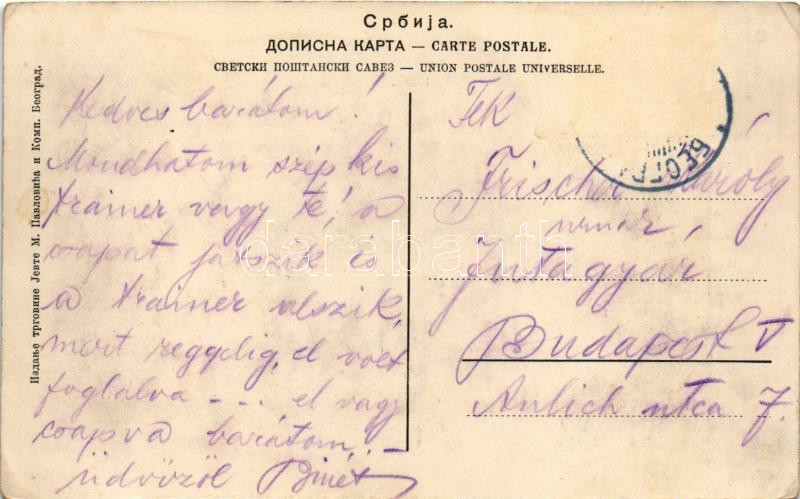 Србија.
ДОПИСНА КАРТА — CARTE POSTALE.
СВЕТСКИ ПОШТАНСКИ САВЕЗ — UNION POSTALE UNIVERSELLE.
Издање трговине Јевте М. Павловића и Комп. Београд.
Kedves barátom!
Mondhatom szép kis
trainer vagy te! a
csapat játszik és
a trainer alszik,
mert reggelig el volt
foglalva --- el vagy
csapva barátom. -
üdvözöl
Tek
Frischer Károly
urnak,
Jutagyár
Budapest V
Anlich utca 7.
БЕОГРА
darabanth